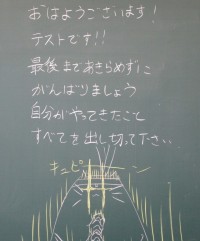 おはようございます!
テストです!!
最後まであきらめずに
がんばりましょう
自分がやってきたこと
すべてを出し切って下さい
キュピーン